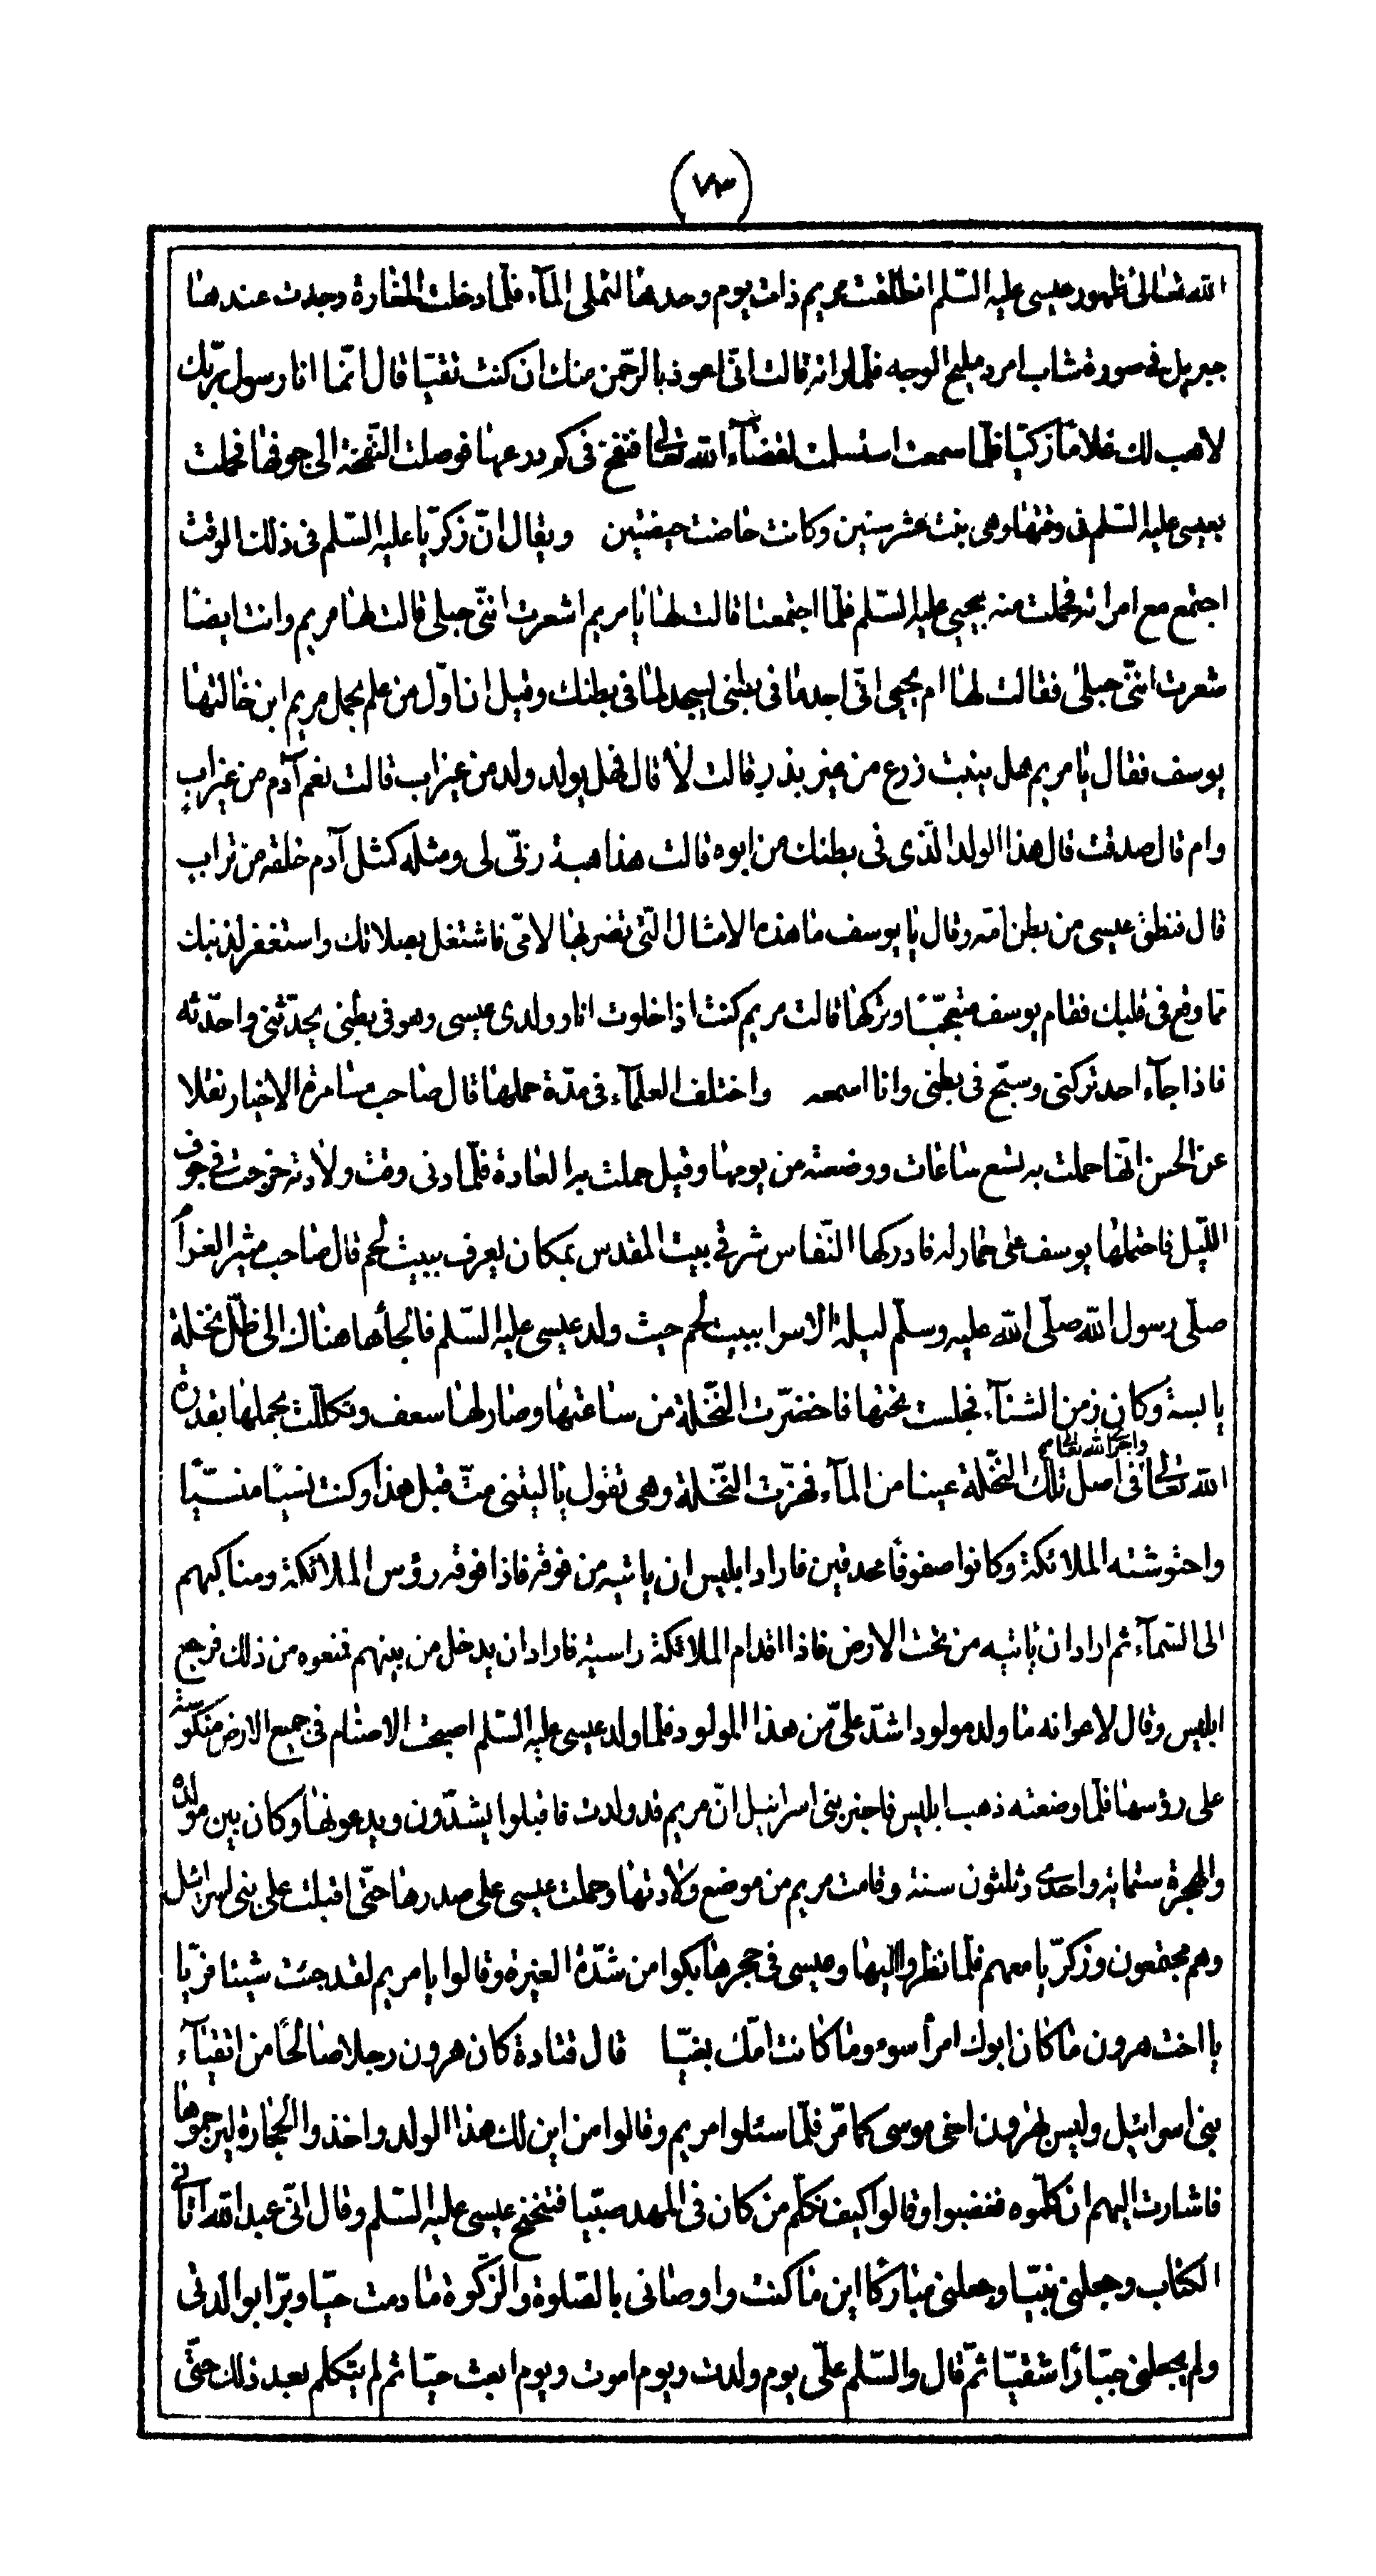 (٧٣)
الله تعالى ظهور عيسى عليه السّلم انطلقت مريم ذات يوم وحدها لتملى المآء فلمّا دخلت المغارة وجدت عندها
جبريل فى صورة شاب امرد مليح الوجه فلمّا راته قالت انّى اعوذ بالرّحمن منك ان كنت تقيّا قال انّما انا رسول ربّك
لاهب لك غلامًا زكيّا فلمّا سمعت استسلمت لقضآء الله تعالى فنفخ فى كم درعها فوصلت النّفخة الى جوفها فحملت
بعيسى عليه السّلم فى وقتها وهى بنت عشر سنين وكانت حاضت حيضتين ويقال انّ زكريّا عليه السّلم فى ذلك الوقت
اجتمع مع امراته فحملت منه بيحيى عليه السّلم فلمّا اجتمعتا قالت لها يا مريم اشعرت انّنى حبلى قالت لها مريم وانت ايضا
شعرت انّنى حبلى فقالت لها ام يحيى انّى اجد ما فى بطنى يسجد لما فى بطنك وقيل ان اوّل من علم بحمل مريم ابن خالتها
يوسف فقال يا مريم هل ينبت زرع من غير بذر قالت لا قال فهل يولد ولد من غير اب قالت نعم آدم من غير اب
وام قال صدقت قال هذا الولد الّذى فى بطنك من ابوه قالت هذا هبة ربّى لى ومثله كمثل آدم خلقه من تراب
قال فنطق عيسى من بطن امّه وقال يا يوسف ما هذه الامثال الّتى تضربها لامّى فاشتغل بصلاتك واستغفر لذنبك
ممّا وقع فى قلبك فقام يوسف متعجّبًا وتركها قالت مريم كنت اذا خلوت انا وولدى عيسى وهو فى بطنى يحدّثنى واحدّثه
فاذا جآء احد تركنى وسبّح فى بطنى وانا اسمعه واختلف العلمآء فى مدّة حملها قال صاحب مسامرة الاخبار نقلا
عن الحسن انّها حملت به تسع ساعات ووضعته من يومها وقيل حملت به العادة فلمّا دنى وقت ولادته خرجت فى جوف
اللّيل فاحتملها يوسف على حمار له فادركها النّفاس شرقى بيت المقدس بمكان يعرف ببيت لحم قال صاحب مثير الغرام
صلّى رسول الله صلّى الله عليه وسلّم ليلة الاسرا ببيت لحم حيث ولد عيسى عليه السّلم فالجأها هناك الى ظلّ نخلة
يابسة وكان زمن الشتآء فجلست تحتها فاخضرّت النّخلة من ساعتها وصار لها سعف وتكلّلت بحملها بقدرة
واجرى الله تعالى
الله تعالى فى اصل تلك النّخلة عينا من المآء فهزّت النّخلة وهى تقول يا ليتنى متّ قبل هذا وكنت نسيًا منسيًّا
واحتوشته الملائكة وكانوا صفوفًا محدقين فاراد ابليس ان ياتيه من فوقه فاذا فوقه رؤس الملائكة ومناكبهم
الى السّمآء ثم اراد ان ياتيه من تحت الارض فاذا اقدام الملائكة راسية فاراد ان يدخل من بينهم فمنعوه من ذلك فرجع
ابليس وقال لاعوانه ما ولد مولود اشدّ علىّ من هذا المولود فلمّا ولد عيسى عليه السّلم اصبحت الاصنام فى جميع الارض منكّسة
على رؤسها فلمّا وضعته ذهب ابليس فاخبر بنى اسرائيل انّ مريم قد ولدت فاقبلوا يشدّون ويدعونها وكان بين مولده
والهجرة ستماية واحدى وثلثون سنة وقامت مريم من موضع ولادتها وحملت عيسى على صدرها حتّى اقبلت على بنى اسرائيل
وهم مجتمعون وزكريّا معهم فلمّا نظروا اليها وعيسى فى حجرها بكوا من شدّة الغيرة وقالوا يا مريم لقد جئت شيئا فريّا
يا اخت هرون ما كان ابوك امرأ سوء وما كانت امّك بغيّا قال قتادة كان هرون رجلا صالحًا من اتقيآء
بنى اسرائيل وليس بهرون اخى موسى كما مّر فلمّا سئلوا مريم وقالوا من اين لك هذا الولد واخذوا الحجارة ليرجموها
فاشارت اليهم ان كلّموه فغضبوا وقالوا كيف نكلّم من كان فى المهد صبيّا فتنحنح عيسى عليه السّلم وقال انّى عبد الله آتانى
الكتاب وجعلنى نبيّا وجعلنى مباركًا اين ما كنت واوصانى بالصّلوة والزّكوة ما دمت حيّا وبرّا بوالدتى
ولم يجعلنى جبّارًا شقيّا ثمّ قال والسّلم علىّ يوم ولدت ويوم اموت ويوم ابعث حيّا ثم لم يتكلم بعد ذلك حتّى